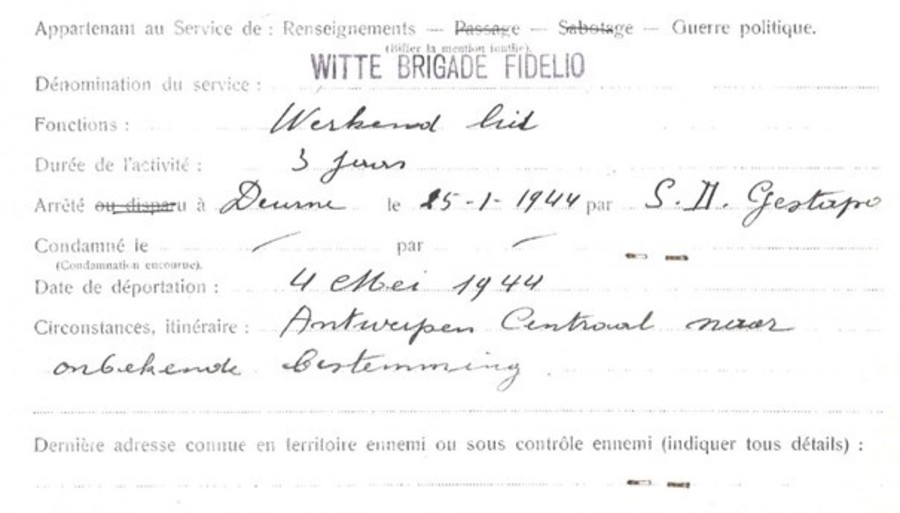 Appartenant au Service de : Renseignements — Passage — Sabotage — Guerre politique.
(Biffer la mention inutile).
WITTE BRIGADE FIDELIO
Dénomination du service :
Fonctions : Werkend lid
Durée de l'activité : 3 jaren
Arrêté ou disparu à Deurne le 25-1-1944 par S. D. Gestapo
Condamné le — par —
(Condamnation encourue).
Date de déportation : 4 Mei 1944
Circonstances, itinéraire : Antwerpen Centraal naar
onbekende bestemming
Dernière adresse connue en territoire ennemi ou sous contrôle ennemi (indiquer tous détails) :